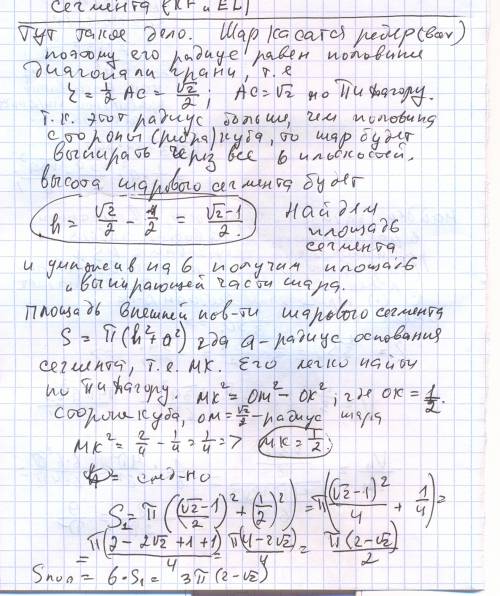 сегмента (KF и EL)
Тут такое дело. Шар касается ребер (всех)
поэтому его радиус равен половине
диагонали грани, т.е
r = 1/2 AC = √2/2 ; AC = √2 по Пифагору.
т.к. этот радиус больше, чем половина
стороны (ребра) куба, то шар будет
выпирать через все 6 плоскостей.
высота шарового сегмента будет
h = √2/2 - 1/2 = (√2-1)/2.
Найдем
площадь
сегмента
и умножив на 6 получим площадь
выпирающей части шара.
Площадь внешней пов-ти шарового сегмента
S = π(h²+a²) где a - радиус основания
сегмента, т.е. MK. Его легко найти
по Пифагору. MK² = OM² - OK² ; где OK = 1/2
сторона куба, OM = √2/2 - радиус шара
MK² = 2/4 - 1/4 = 1/4 => MK = 1/2
= след-но
S₁ = π(((√2-1)/2)² + (1/2)²) = π((√2-1)²/4 + 1/4) =
= π(2-2√2+1+1)/4 = π(4-2√2)/4 = π(2-√2)/2
Sпол = 6·S₁ = 3π(2-√2)